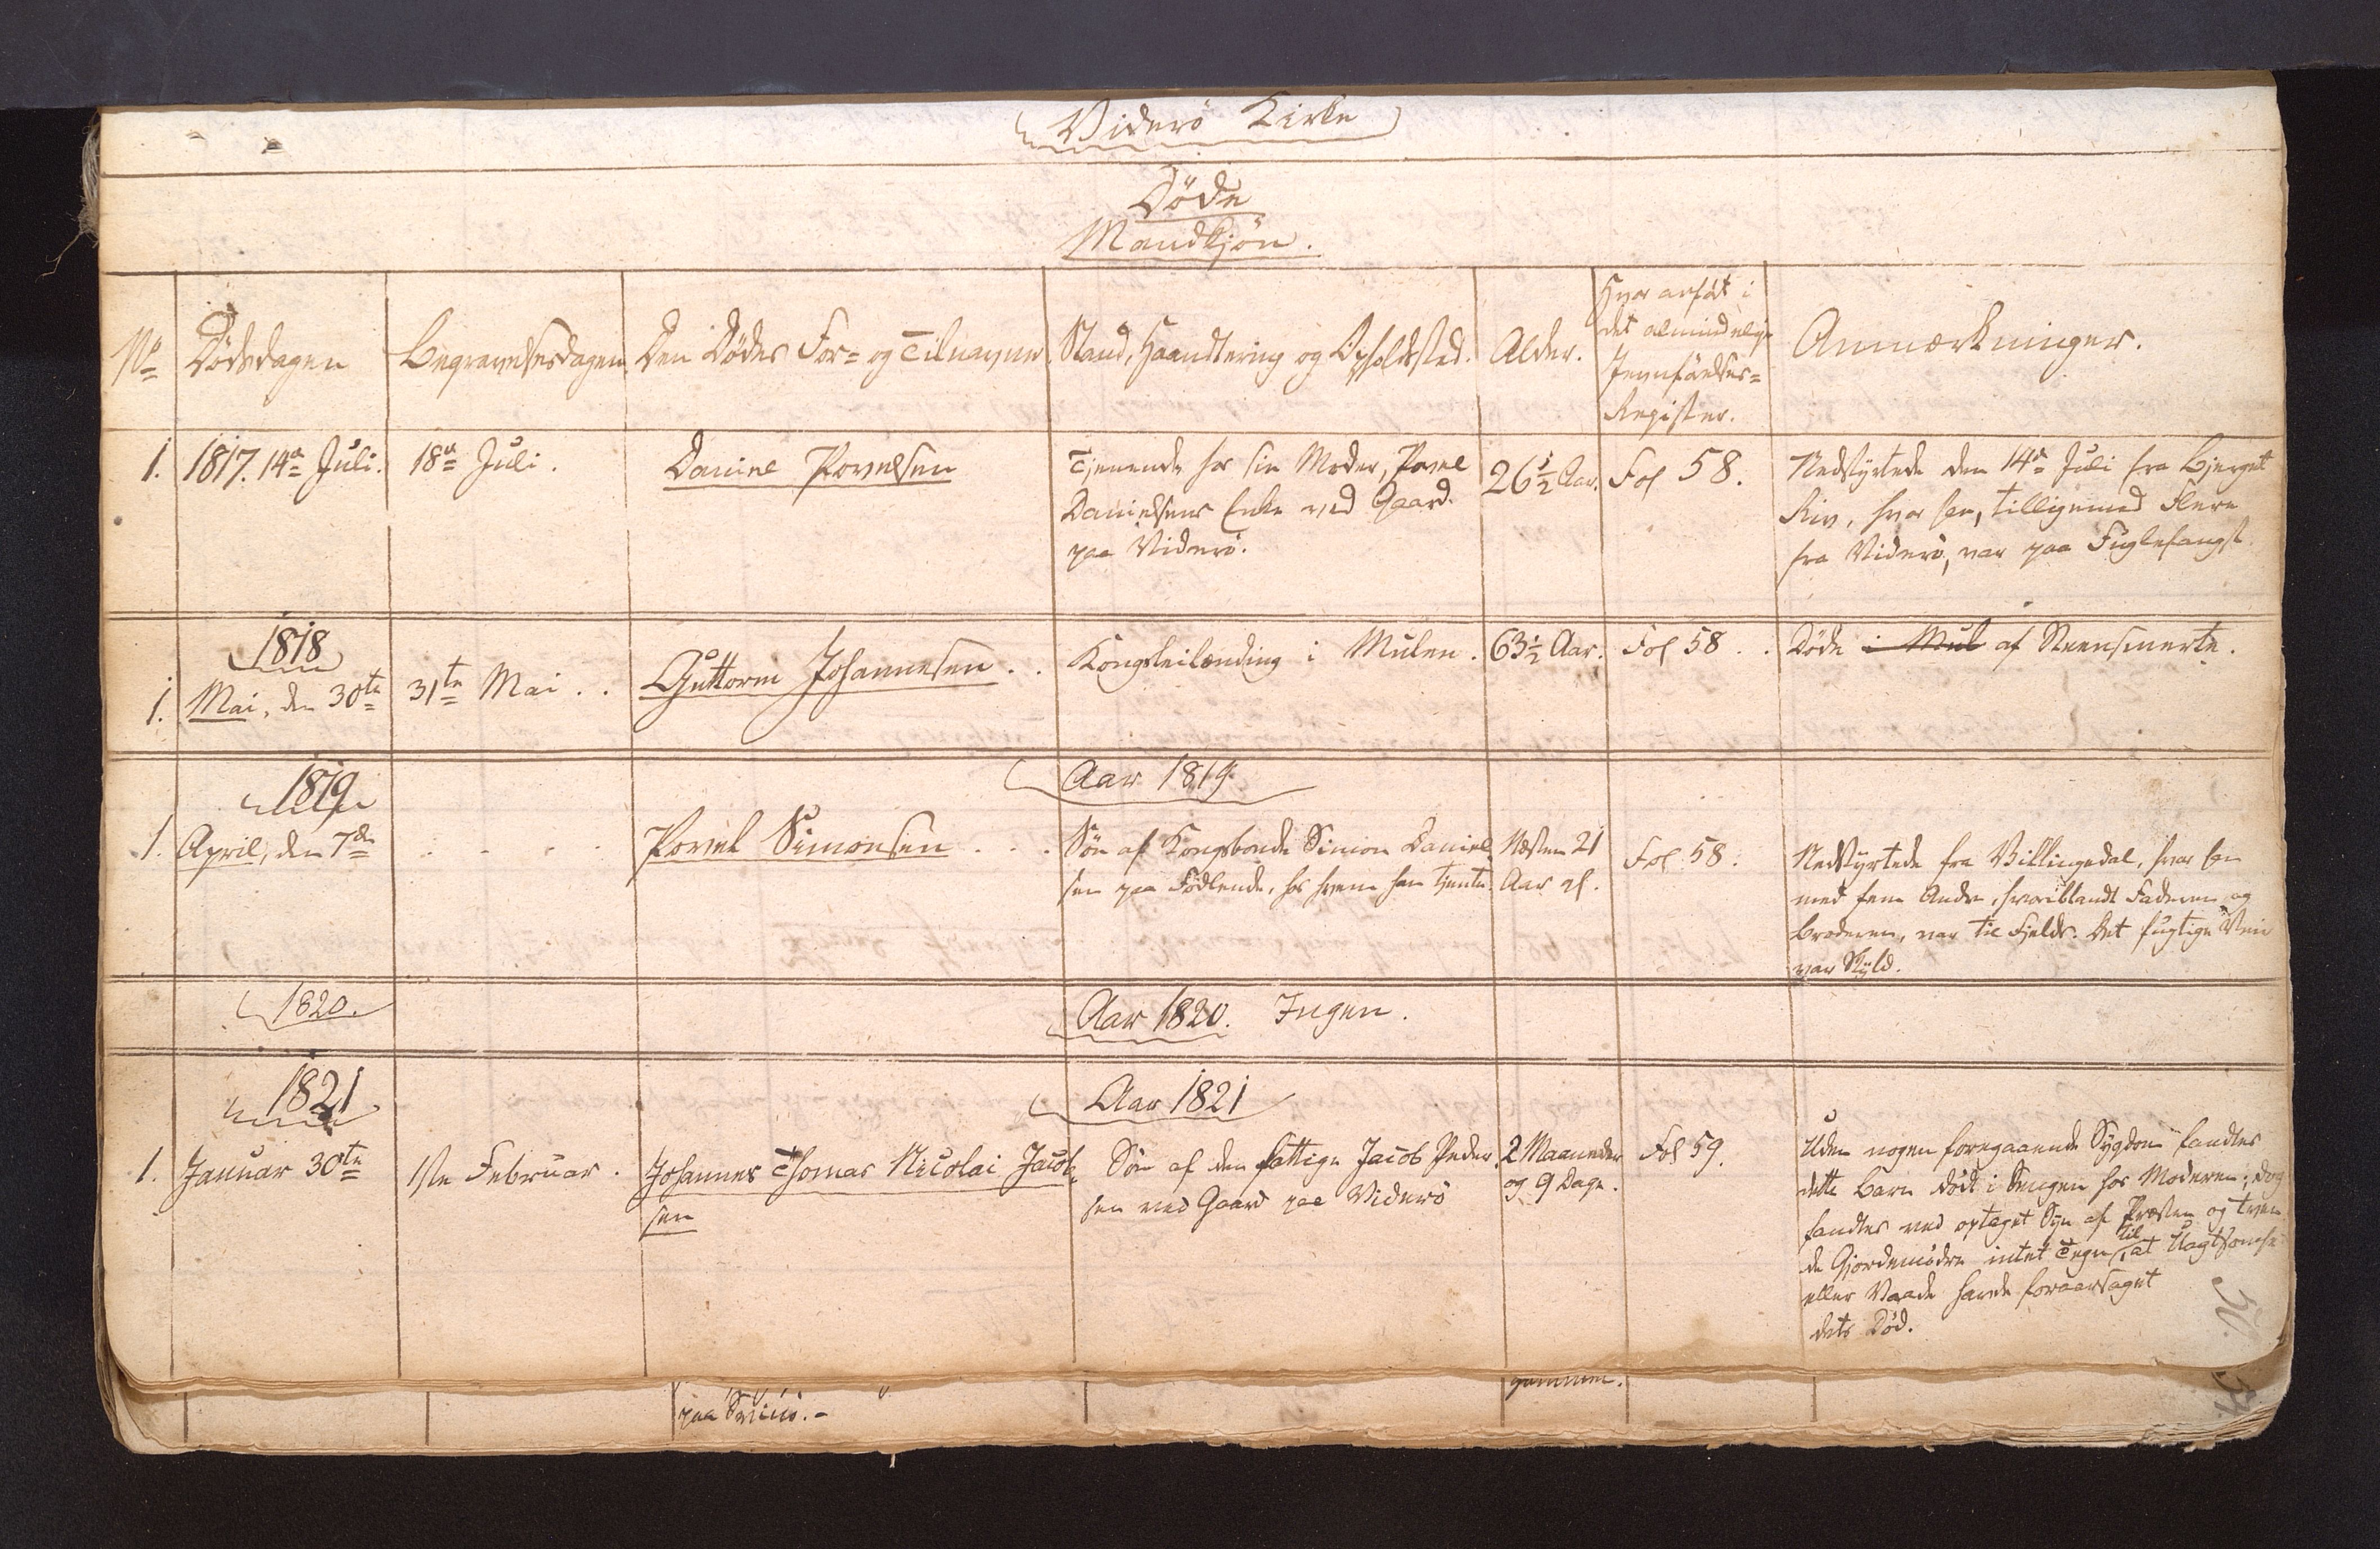 Viderö Kirke
Döde
Mandkjön.
No Dödsdagen Begravelsesdagen Den Dödes For= og Tilnavne Stand, Haandtering og Opholdsted. Alder. Hvor anfört i
det almindelige
Jevnförelses=
Register. Anmærkninger.
1. 1817. 14de Juli. 18de Juli. Daniel Povelsen Tjenende hos sin Moder, Povel
Danielsens Enke ved Gaard
paa Viderö. 26½ Aar. Fol 58. Nedstyrtede den 14de Juli fra Bjerget
hvor han, tilligemed Flere
fra Viderö, var paa Fuglefangst.
1818
1. Mai, den 30te 31te Mai . . Guttorm Johannesen . . Kongsleilænding i Mulen. 63½ Aar. Fol 58 . . Döde i Mul af Steensmerte.
1819 Aar 1819.
1. April, den 7de . . . . Povel Simonsen . . . Sön af Kongsbonde Simon Daniel-
sen paa hos hvem han tjente. Næsten 21
Aar gl. Fol. 58. Nedstyrtede fra Villingedal, hvor han
med fem Andre, hvoriblandt Faderen og
Broderen, var til Fjelds. Det fugtige Veir
var Skyld.
1820. Aar 1820. Ingen.
1821 Aar 1821
1. Januar 30te 1ste Februar. Johannes Thomas Nicolai Jacob-
sen Sön af den fattige Jacob Peder-
sen ved Gaard paa Viderö 2 Maaneder
og 9 Dage. Fol 59. Uden nogen foregaaende Sygdom fandtes
dette Barn dödt i Sengen hos Moderen; dog
fandtes ved optaget Syn af Præsten og tven-
de Gjordemödre intet Tegn til, at Uagtsomhe
eller Vaade havde foraarsaget
dets Död.
50.
paa Svinö.- gammel.